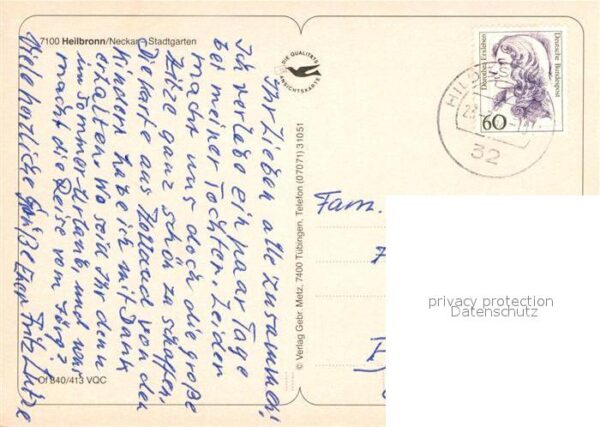 7100 Heilbronn/Neckar - Stadtgarten
DIE QUALITÄTS
ANSICHTSKARTE
Ihr Lieben alle zusammen!
Ich verlebe ein paar Tage
bei meiner Tochter. Leider
macht uns doch die große
Hitze ganz schön zu schaffen,
Die Karte aus Holland von den
Kindern habe ich mit Dank
erhalten. Wo seid ihr denn
im Sommer-Urlaub, und was
macht die Reise vom Jörg?
Viele herzliche Grüße Euer Fritz
Of 840/413 VQC
© Verlag Gebr. Metz, 7400 Tübingen, Telefon (07071) 31051
Dorothea Erxleben
Deutsche Bundespost
60
32
Fam.
privacy protection
Datenschutz